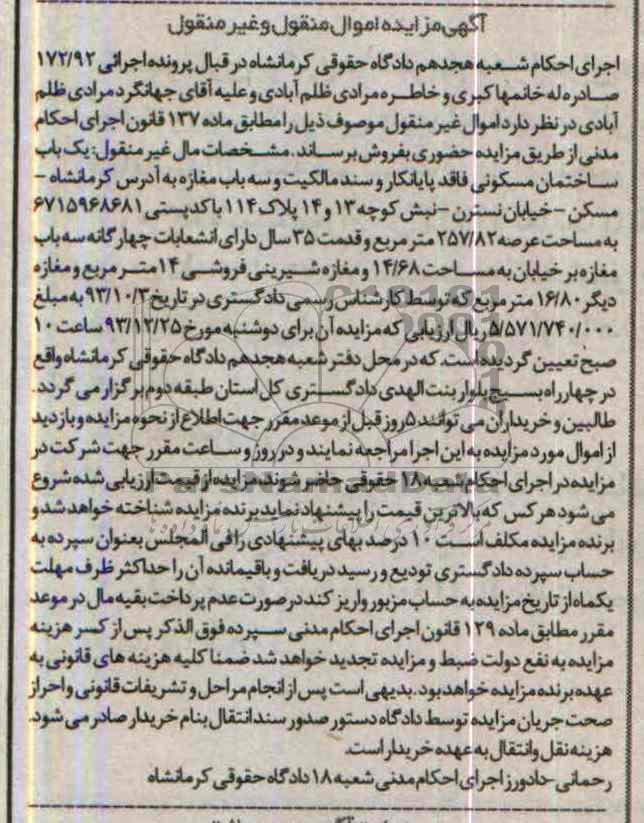 آگهی مزایده اموال منقول و غیر منقول
اجرای احکام شعبه هجدهم دادگاه حقوقی کرمانشاه در قبال پرونده اجرائی ۱۷۲/۹۲
صادره له خانمها کبری و خاطره مرادی ظلم آبادی و علیه آقای جهانگرد مرادی ظلم
آبادی در نظر دارد اموال غیر منقول موصوف ذیل را مطابق ماده ۱۳۷ قانون اجرای احکام
مدنی از طریق مزایده حضوری بفروش برساند. مشخصات مال غیر منقول: یک باب
ساختمان مسکونی فاقد پایانکار و سند مالکیت و سه باب مغازه به آدرس کرمانشاه -
مسکن - خیابان نسترن - نبش کوچه ۱۳ و ۱۴ پلاک ۱۱۴ با کدپستی ۶۷۱۵۹۶۸۶۸۱
به مساحت عرصه ۲۵۷/۸۲ متر مربع و قدمت ۳۵ سال دارای انشعابات چهارگانه سه باب
مغازه بر خیابان به مساحت ۱۴/۶۸ و مغازه شیرینی فروشی ۱۴ متر مربع و مغازه
دیگر ۱۶/۸۰ متر مربع که توسط کارشناس رسمی دادگستری در تاریخ ۹۳/۱۰/۳ به مبلغ
۵/۵۷۱/۷۴۰/۰۰۰ ریال ارزیابی که مزایده آن برای دوشنبه مورخ ۹۳/۱۲/۲۵ ساعت ۱۰
صبح تعیین گردیده است. که در محل دفتر شعبه هجدهم دادگاه حقوقی کرمانشاه واقع
در چهارراه بسیج بلوار بنت الهدی دادگستری کل استان طبقه دوم برگزار می گردد.
طالبین و خریداران می توانند ۵ روز قبل از موعد مقرر جهت اطلاع از نحوه مزایده و بازدید
از اموال مورد مزایده به این اجرا مراجعه نمایند و در روز و ساعت مقرر جهت شرکت در
مزایده در اجرای احکام شعبه ۱۸ حقوقی حاضر شوند، مزایده از قیمت ارزیابی شده شروع
می شود هر کس که بالاترین قیمت را پیشنهاد نماید برنده مزایده شناخته خواهد شد و
برنده مزایده مکلف است ۱۰ درصد بهای پیشنهادی را فی المجلس بعنوان سپرده به
حساب سپرده دادگستری تودیع و رسید دریافت و باقیمانده آن را حداکثر ظرف مهلت
یکماه از تاریخ مزایده به حساب مزبور واریز کند در صورت عدم پرداخت بقیه مال در موعد
مقرر مطابق ماده ۱۲۹ قانون اجرای احکام مدنی سپرده فوق الذکر پس از کسر هزینه
مزایده به نفع دولت ضبط و مزایده تجدید خواهد شد ضمنا کلیه هزینه های قانونی به
عهده برنده مزایده خواهد بود. بدیهی است پس از انجام مراحل و تشریفات قانونی و احراز
صحت جریان مزایده توسط دادگاه دستور صدور سند انتقال بنام خریدار صادر می شود.
هزینه نقل و انتقال به عهده خریدار است.
رحمانی - دادورز اجرای احکام مدنی شعبه ۱۸ دادگاه حقوقی کرمانشاه